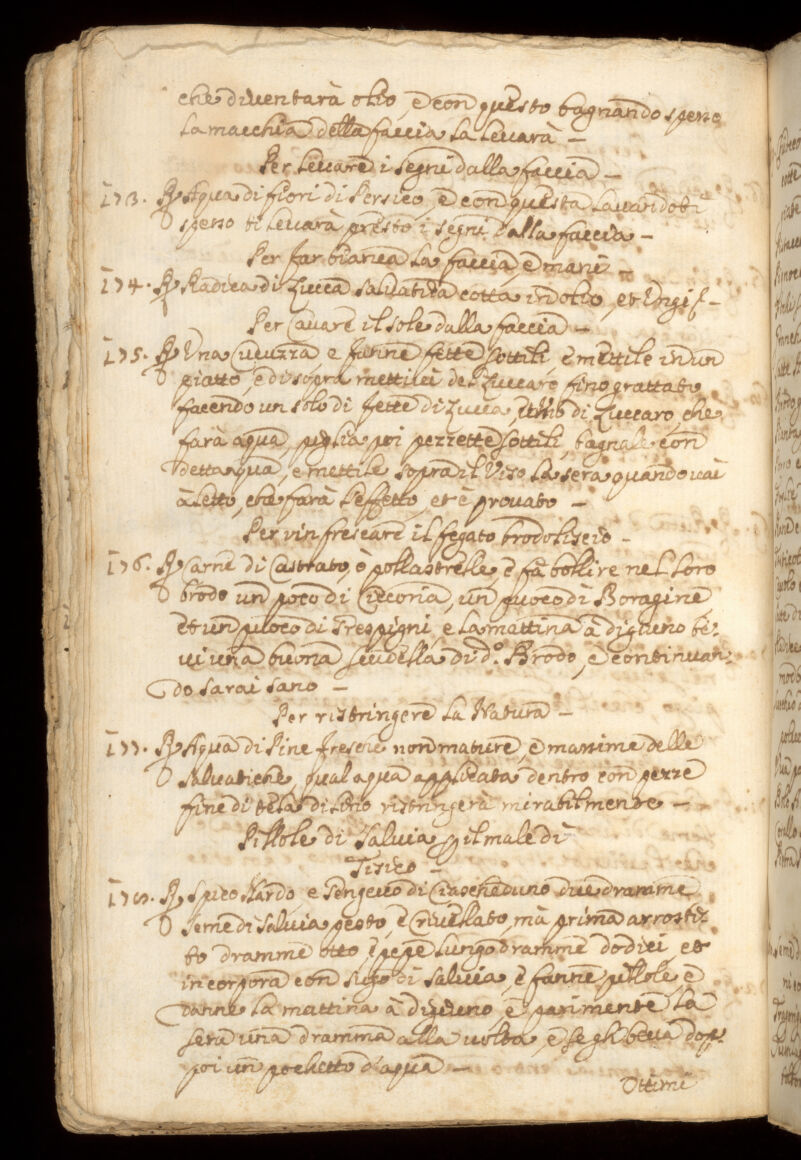 che diventarà olio, è con questo bagnando speßo
la macchia della faccia la levarà –
Per levare i segni dalla faccia –
173. R Aqua di fiori di Persico, è con questa lavandoti
speßo ti levarà presto i segni dalla faccia –
Per far bianca la faccia, è mani –
174. R Radica di Zucca salvatica cotta in olio, et
Per Cavare il sole dalla faccia –
175. R Una Cucuzza e fanne fette sottili, è mettile in un
piatto, è di sopra mettici del Zuccaro fino grattato
facendo un solo di fette di Zucca, di Zuccaro, che
farà aqua, piglia poi pezzette sottili, bagnale con
detta qua, e mettile sopra il Viso la sera quando vai
à letto, che farà l'effetto, et è provato –
Per rinfrescare il fegato brodo liscio –
176. R Carne di Castrato, ò pollastrelle, è fà bollire nel loro
brodo un poco di Cicoria, un puoco di Boragine
et un puoco di Trespigni, e la mattina à digiuno be-
vi una buona scudella di d.º Brodo, è continuan-
do sarai sano –
Per ristringere la Natura –
177. R Aqua di Pine fresche non mature, è maßime delle
salvatiche, qual aqua applicata dentro con pezze
fine di tela di lino ristringerà mirabilmente –
Pillole di Salvia p il male di
Tisico –
178. R Spico Nardo, e Gengevo di Ciascheduno due dramme
seme di salvia pesto, è Crivellato, mà prima arrosti-
to dramme otto, è pepe lungo dramme dodici, et
incorpora con sugo di salvia, è fanne pillole, è
danne la mattina à diggiuno, è parimente la
sera una dramma alla volta, è se gli beva dop-
poi un pochetto d'aqua –
Ottime